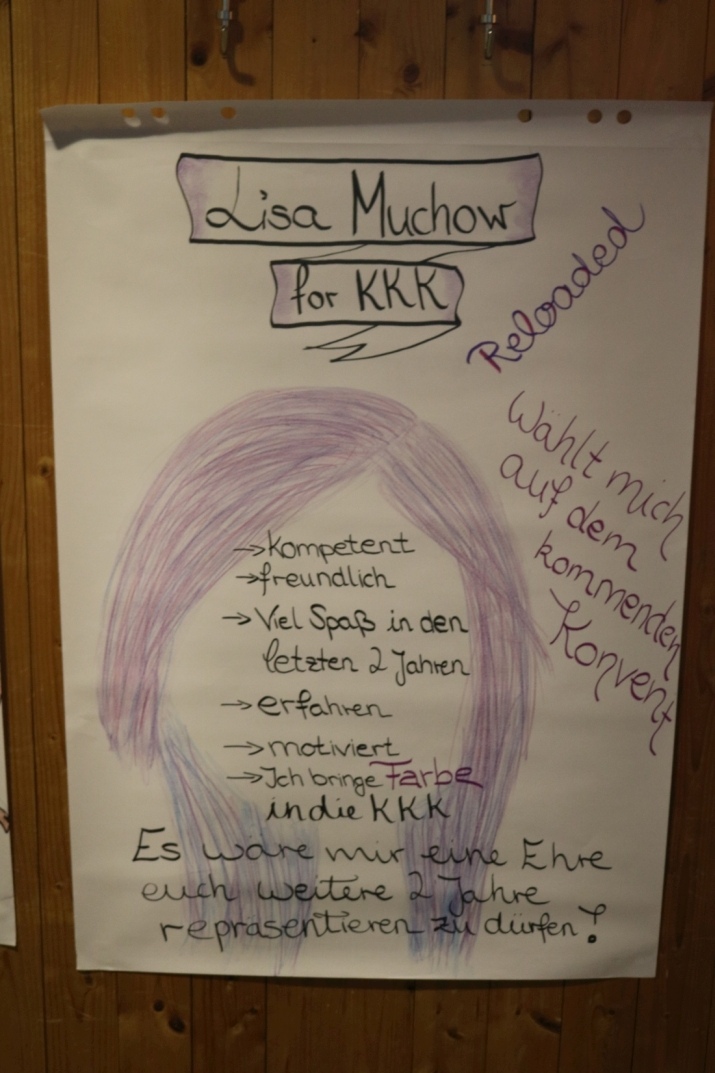 Lisa Muchow
for KKK
Reloaded
Wählt mich
auf dem
kommenden
Konvent
→kompetent
→freundlich
→Viel Spaß in den
letzten 2 Jahren
→erfahren
→motiviert
→Ich bringe Farbe
in die KKK
Es wäre mir eine Ehre
euch weitere 2 Jahre
repräsentieren zu dürfen!